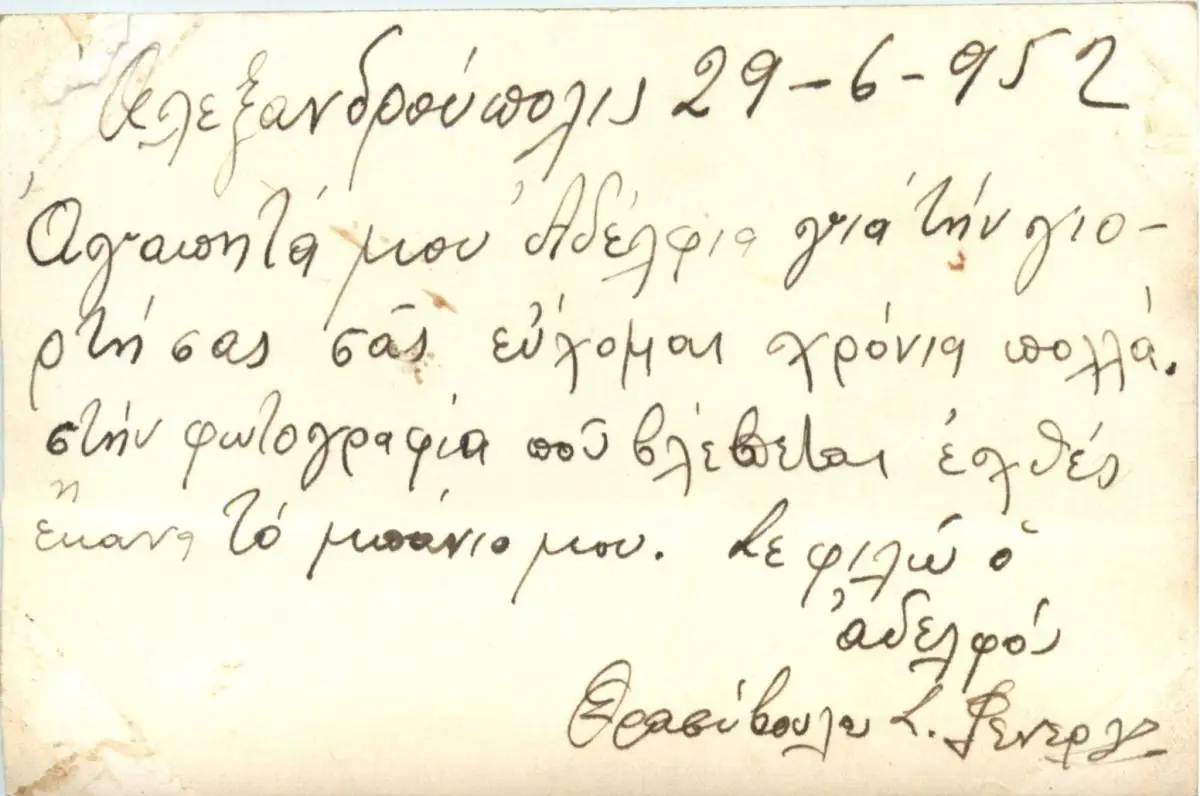 Ἀλεξανδρούπολις 29-6-952
Ἀγαπητά μου Ἀδέλφια γιά τήν γιο-
ρτή σας σᾶς εὔχομαι χρόνια πολλά.
στήν φωτογραφία ποῦ βλέπεται ἐχθές
ἔκανα τό μπάνιο μου. Σε φιλῶ ὁ
ἀδελφός
Θρασύβουλος Σ.